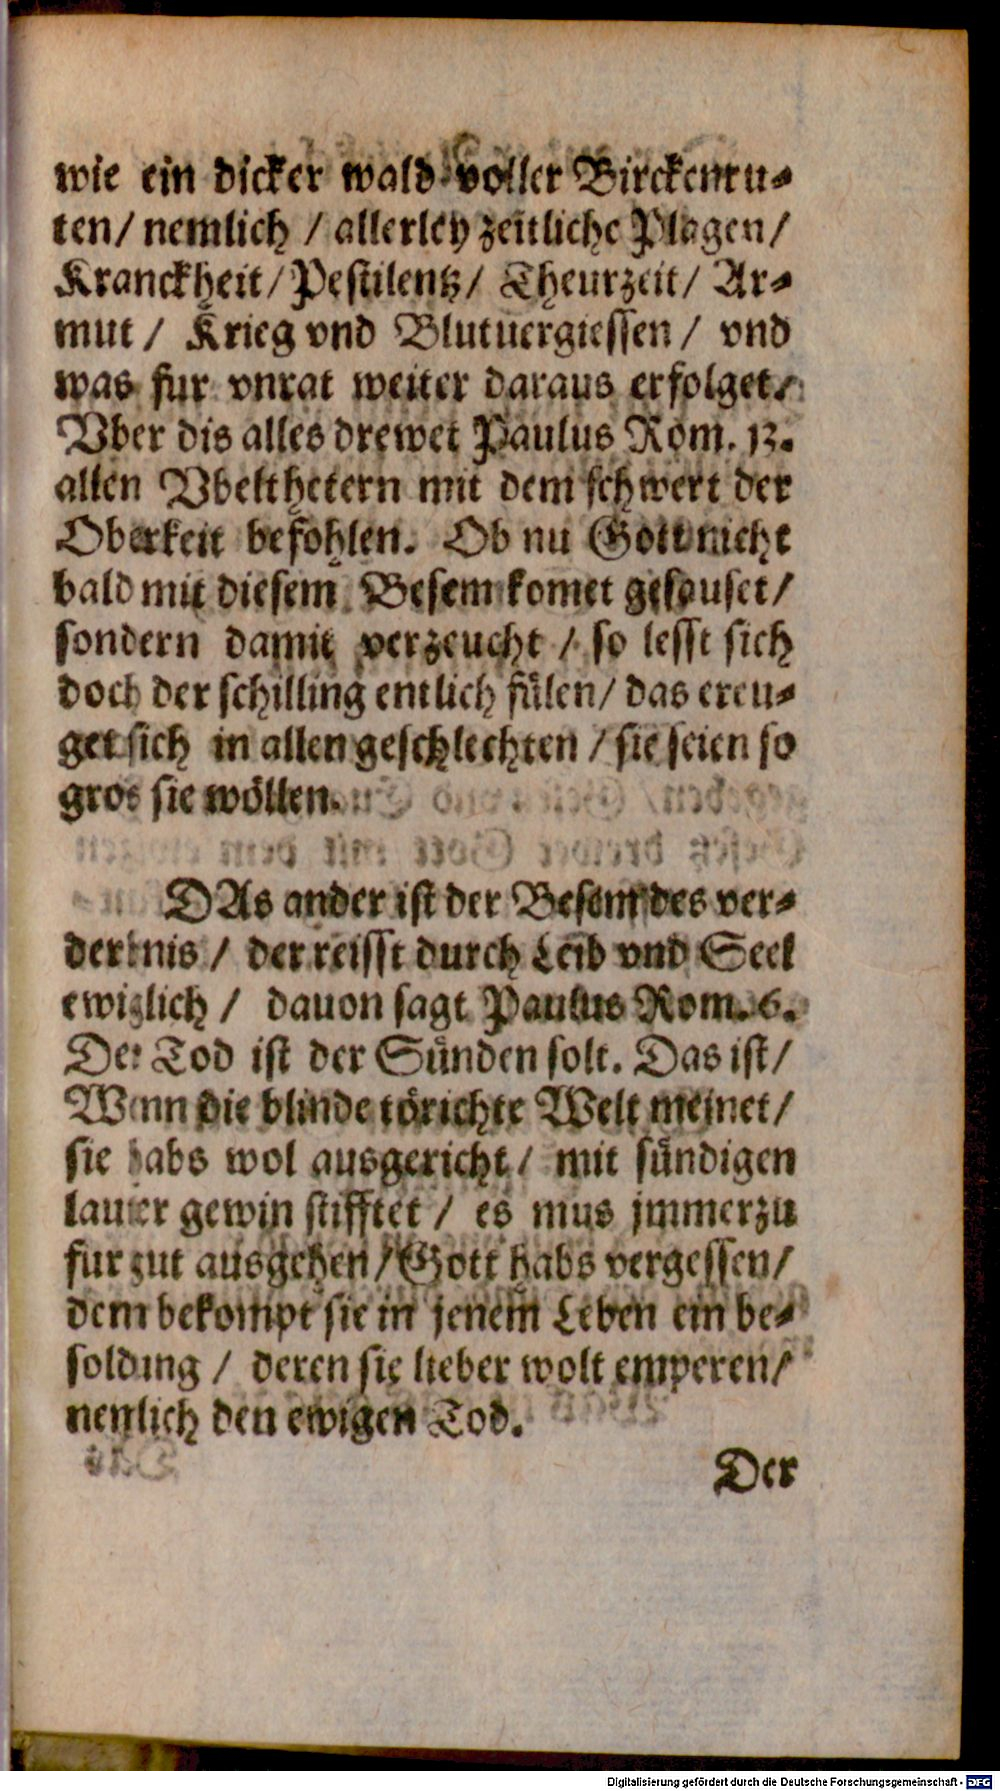 wie ein dicker wald voller Birckenru-
ten/ nemlich / allerley zeitliche Plagen/
Kranckheit/ Pestilentz/ Theurzeit/ Ar-
mut / Krieg vnd Blutuergiessen / vnd
was fur vnrat weiter daraus erfolget/
Vber dis alles drewet Paulus Rom. 13.
allen Vbelthetern mit dem schwert der
Oberkeit befohlen. Ob nu Gott nicht
bald mit diesem Besem komet gesauset/
sondern damit verzeucht / so lesst sich
doch der schilling entlich fülen/ das ereu-
get sich in allen geschlechten / sie seien so
gros sie wöllen.
DAs ander ist der Besem des ver-
derbnis / der reisst durch Leib vnd Seel
ewiglich / dauon sagt Paulus Rom. 6.
Der Tod ist der Sünden solt. Das ist/
Wenn die blinde törichte Welt meinet/
sie habs wol ausgericht / mit sündigen
lauter gewin stifftet / es mus jmmerzu
fur gut ausgehen / Gott habs vergessen/
denn bekompt sie in jenem Leben ein be-
soldung / deren sie lieber wolt emperen/
nemlich den ewigen Tod.
Der
Digitalisierung gefördert durch die Deutsche Forschungsgemeinschaft - DFG